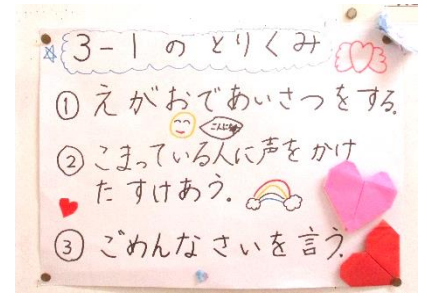 3-1のとりくみ
① えがおであいさつをする。
② こまっている人に声をかけ
たすけあう。
③ ごめんなさいを言う。